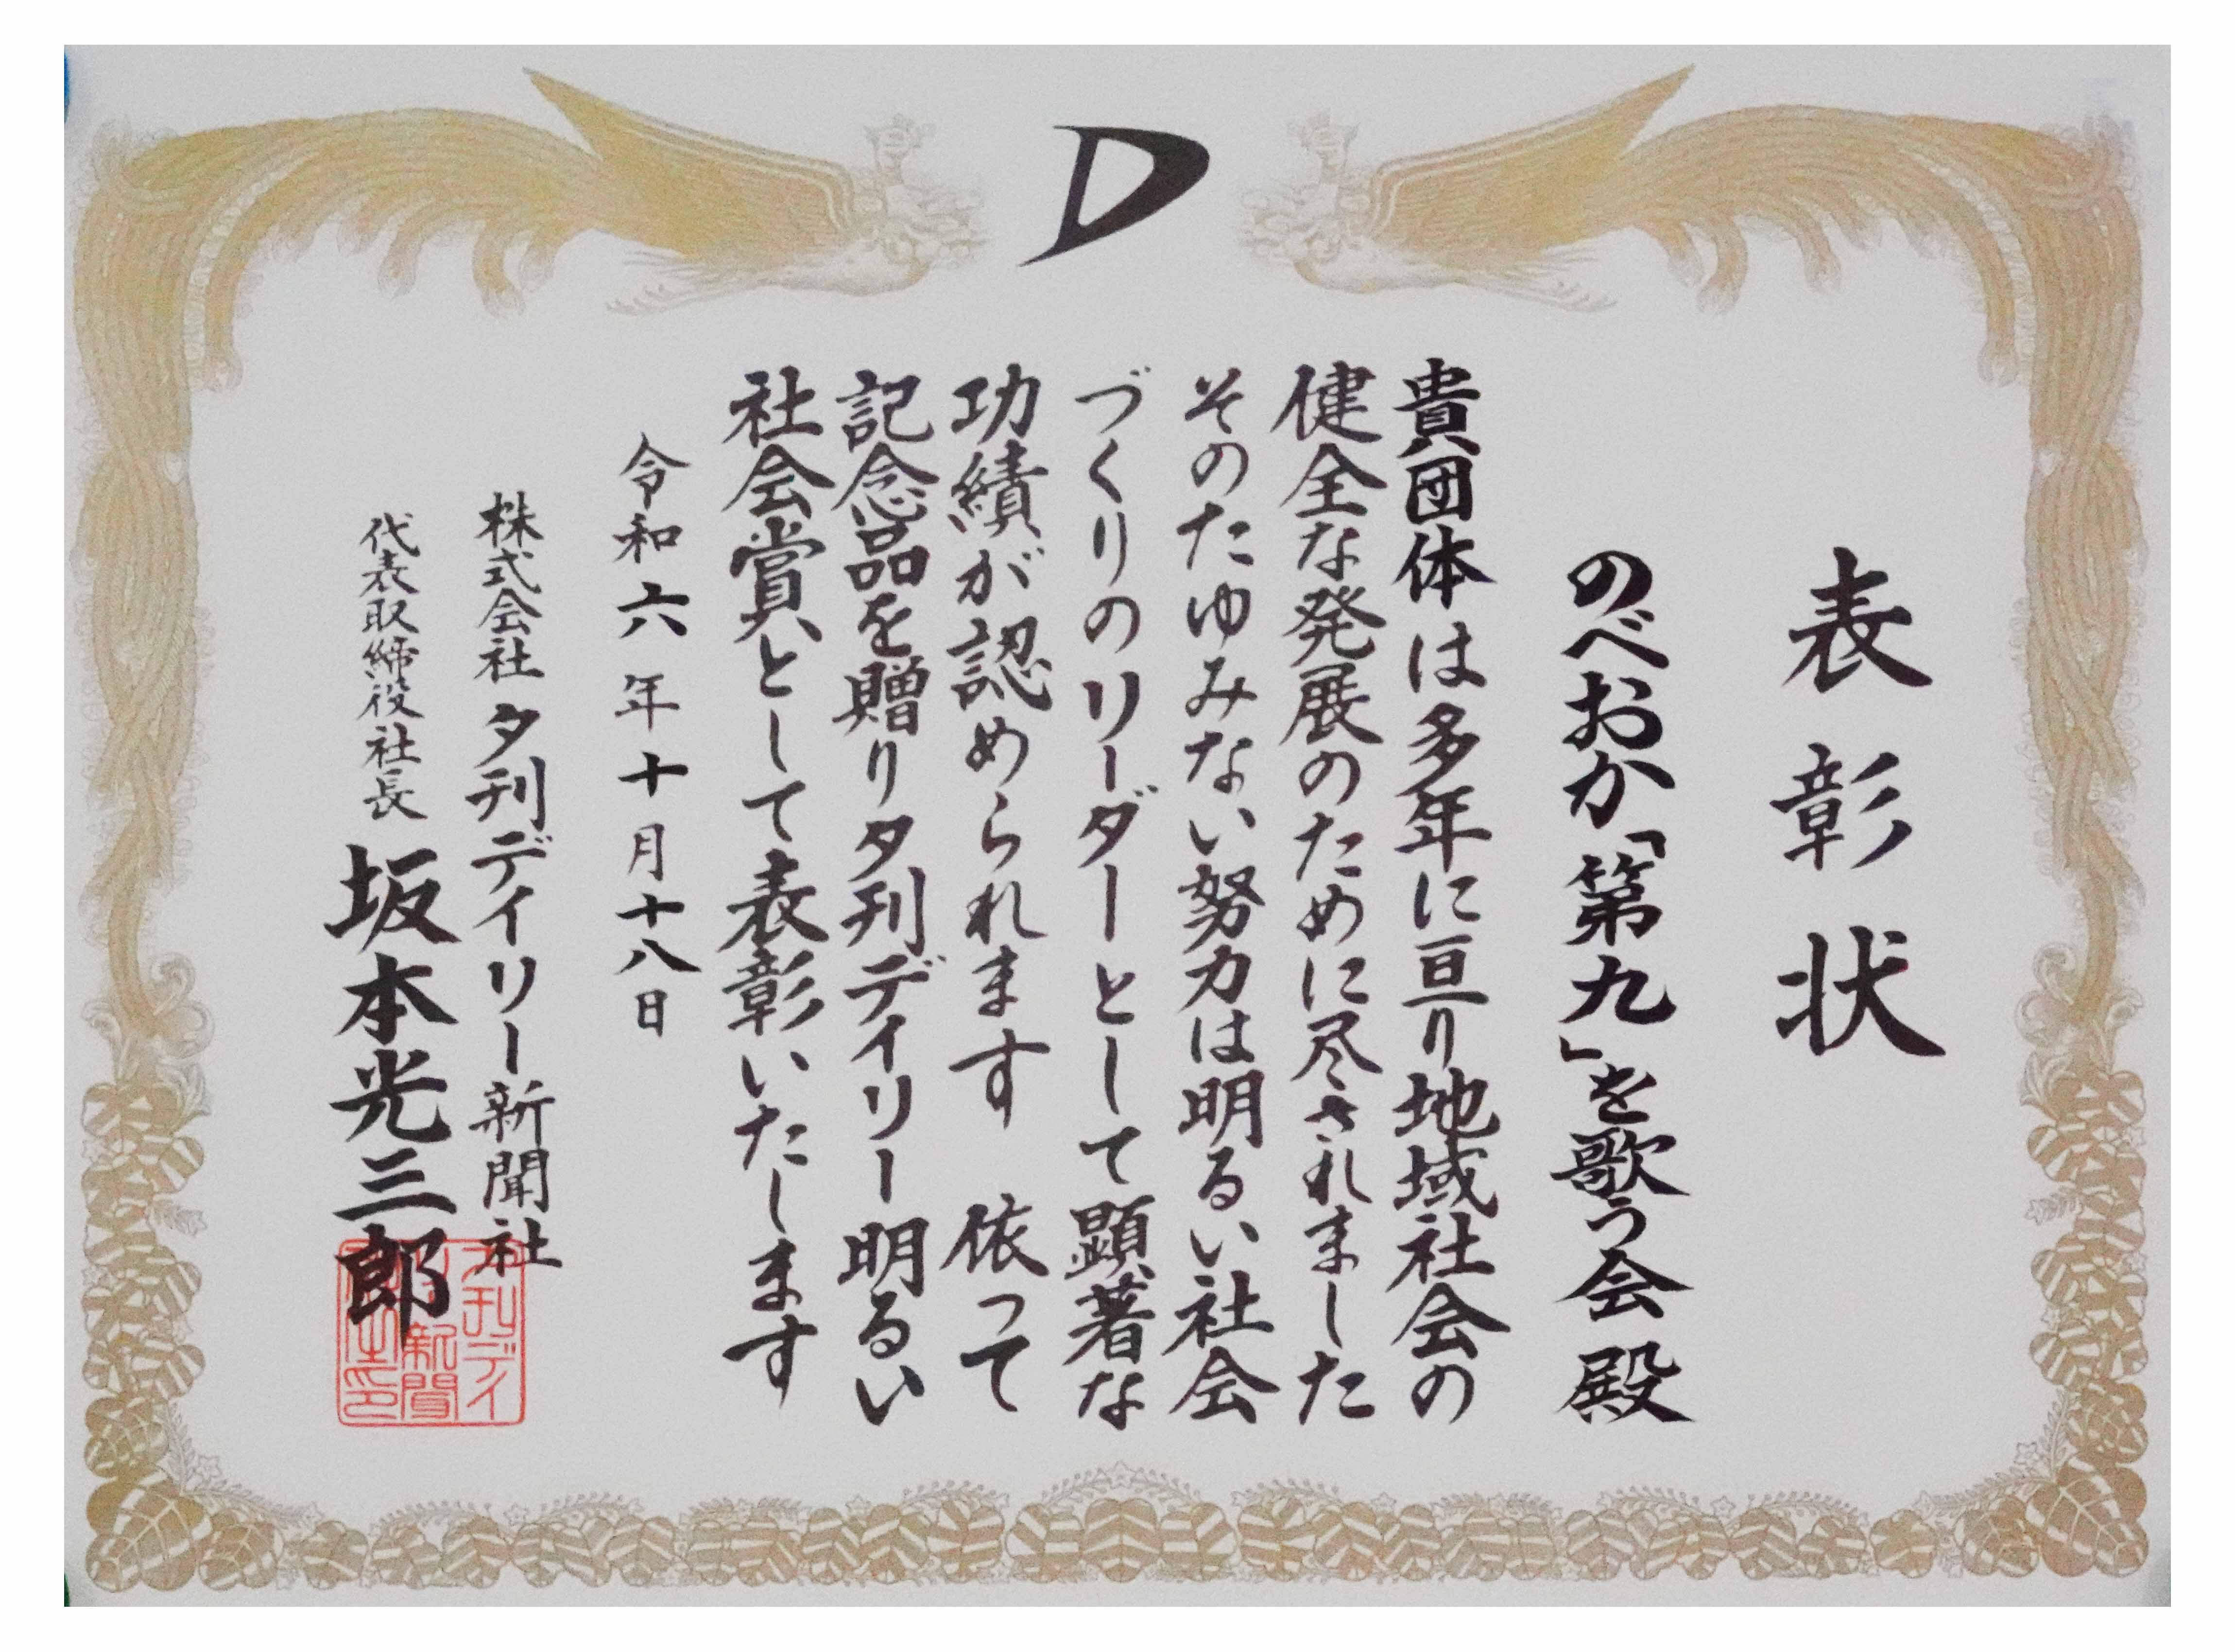 D
表彰状
のべおか「第九」を歌う会 殿
貴団体は多年に亘り地域社会の
健全な発展のために尽されました
そのたゆみない努力は明るい社会
づくりのリーダーとして顕著な
功績が認められます 依って
記念品を贈り夕刊デイリー明るい
社会賞として表彰いたします
令和六年十月十八日
株式会社 夕刊デイリー新聞社
代表取締役社長 坂本光三郎